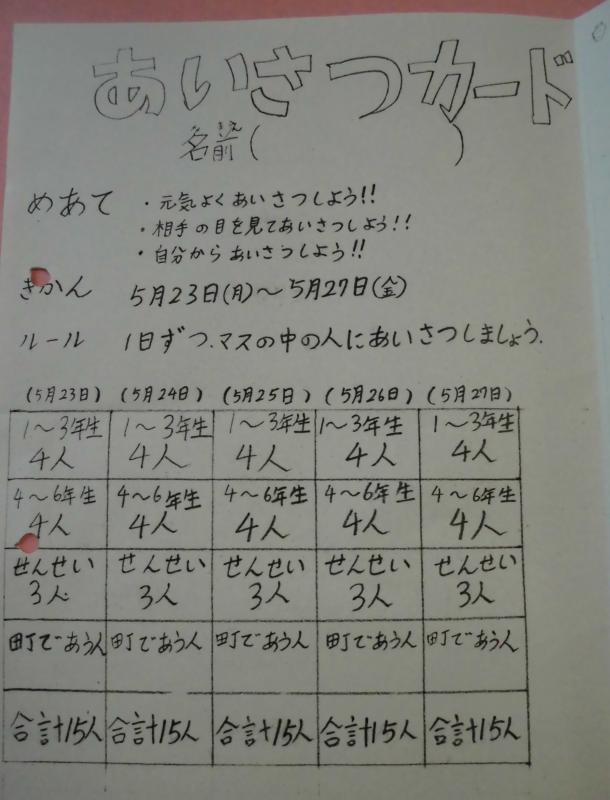 あいさつカード
名前(なまえ)(　　　)
めあて ・元気よくあいさつしよう!!
・相手の目を見てあいさつしよう!!
・自分からあいさつしよう!!
きかん 5月23日(月)〜5月27日(金)
ルール 1日ずつ、マスの中の人にあいさつしましょう。
(5月23日) (5月24日) (5月25日) (5月26日) (5月27日)
1〜3年生 1〜3年生 1〜3年生 1〜3年生 1〜3年生
4人 4人 4人 4人 4人
4〜6年生 4〜6年生 4〜6年生 4〜6年生 4〜6年生
4人 4人 4人 4人 4人
せんせい せんせい せんせい せんせい せんせい
3人 3人 3人 3人 3人
町であう人 町であう人 町であう人 町であう人 町であう人
合計15人 合計15人 合計15人 合計15人 合計15人